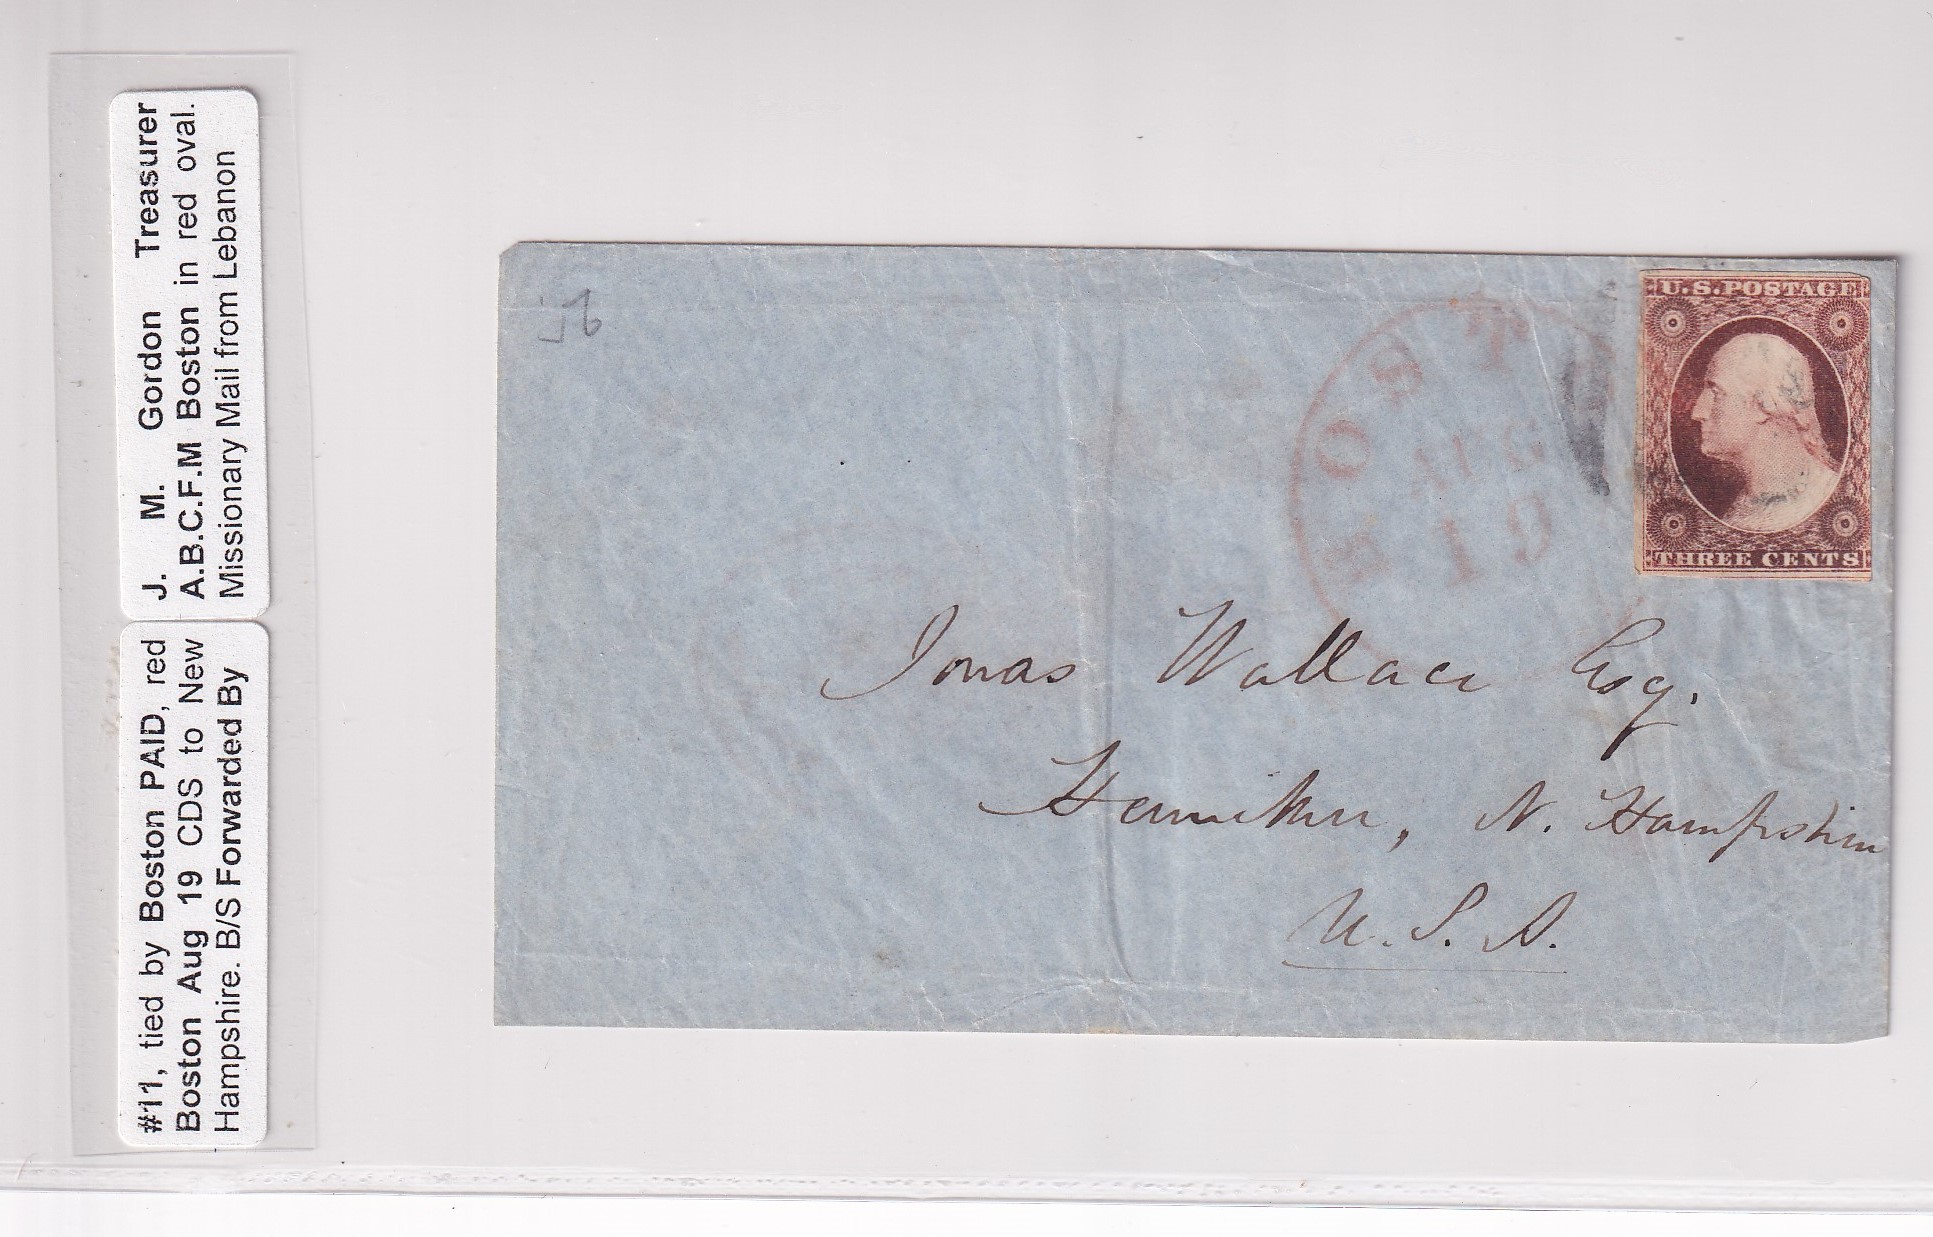 #11, tied by Boston PAID, red
Boston Aug 19 CDS to New
Hampshire. B/S Forwarded By
J. M. Gordon Treasurer
A.B.C.F.M Boston in red oval.
Missionary Mail from Lebanon
U.S. POSTAGE
THREE CENTS
BOST
19
Jonas Wallace Esq.
Henniker, N. Hampshire
U.S.A.